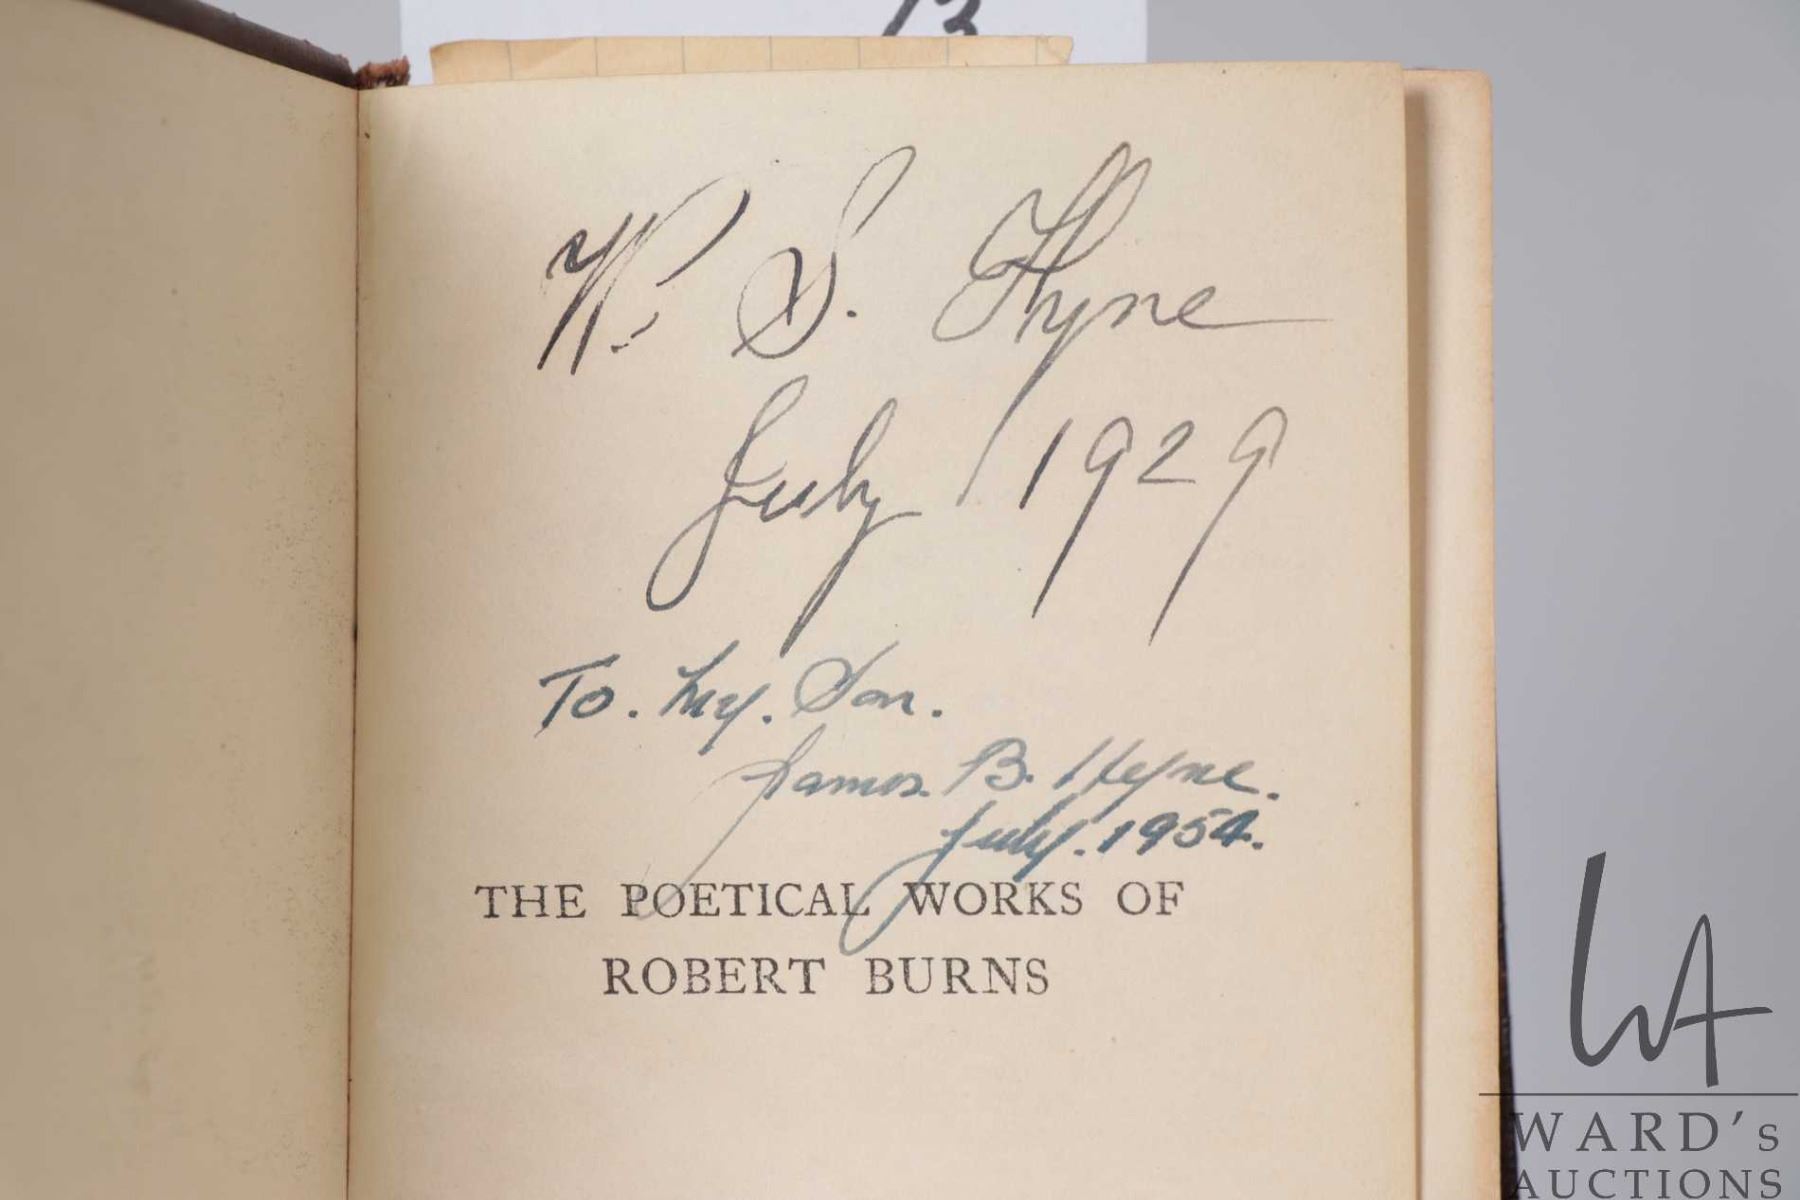 13
W. S. Hyne
July 1929
To. My. Son.
James. B. Heyne.
July. 1954.
THE POETICAL WORKS OF
ROBERT BURNS
WA
WARD's
AUCTIONS